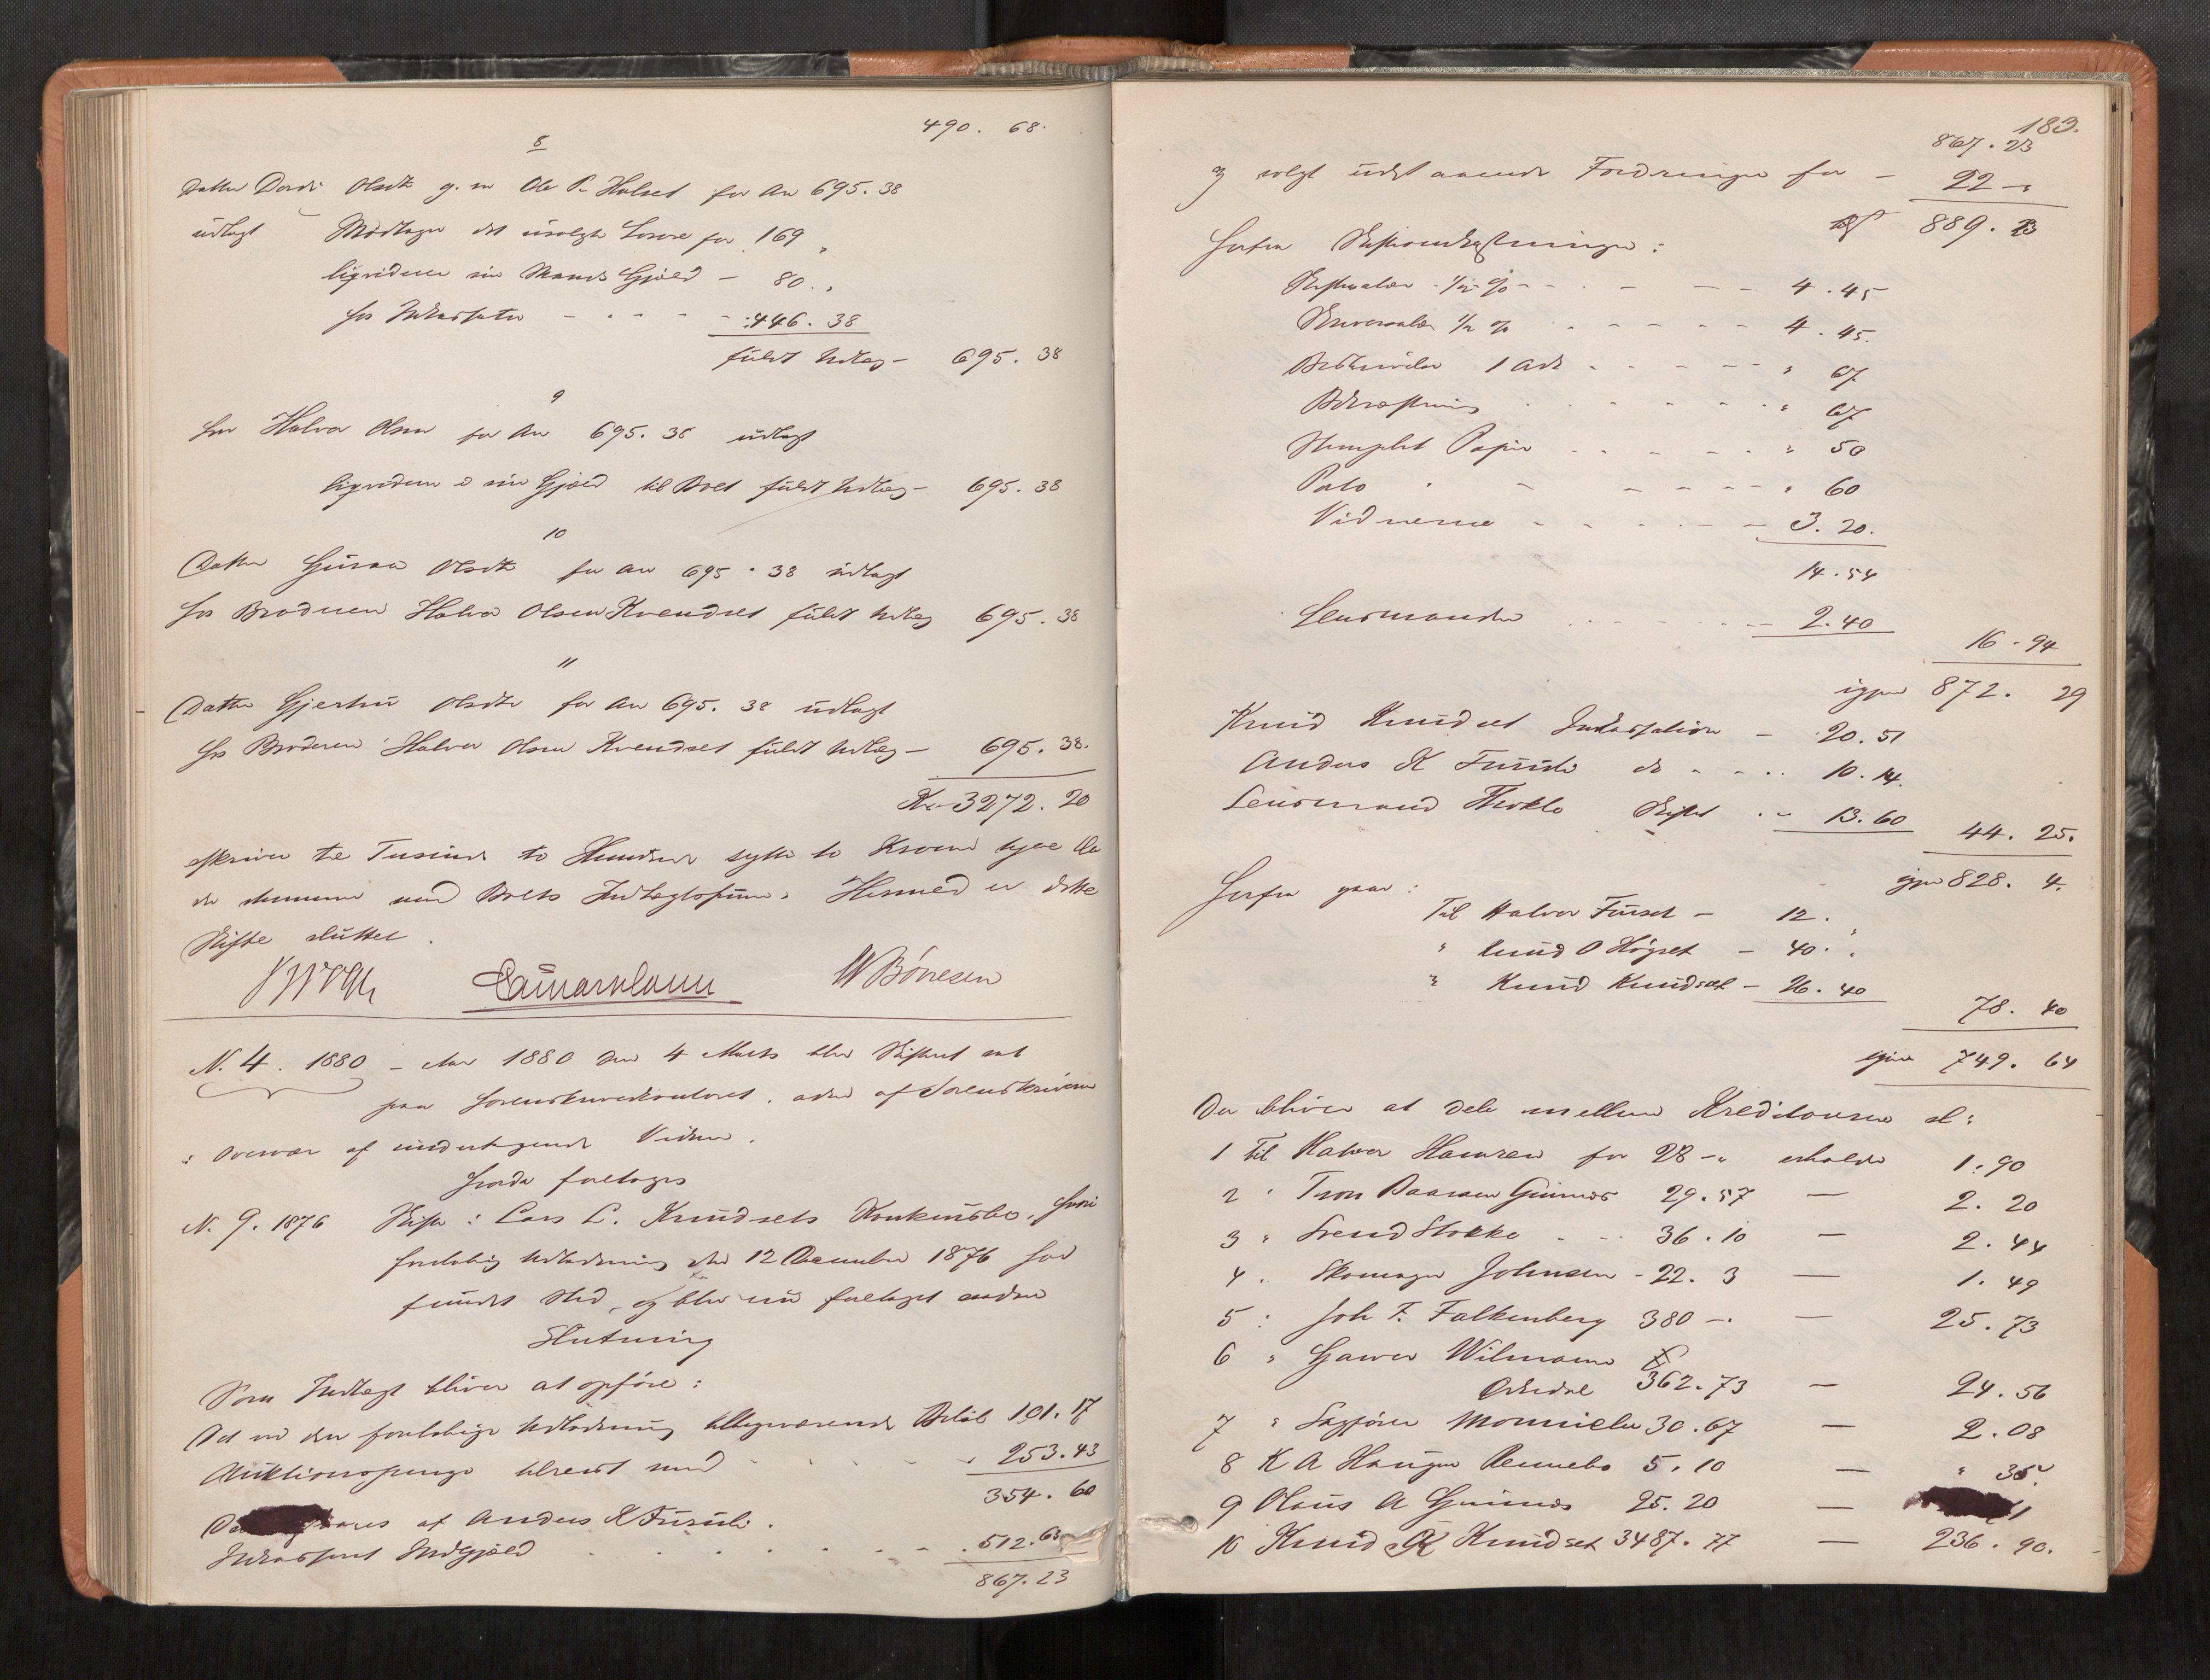 490. 68.
8
Datter Dordi Olsdtr g. m Ole P. Halset for Arv 695.38
udlagt Modtager det usolgte Løsøre for 169 "
liqviderer sin Mands Gjæld - 80. "
hos Inkassator - - - - - 446. 38
fuldt Udlæg - 695. 38
9
Søn Halvor Olsen for Arv 695. 38 udlagt
liqviderer i sin Gjæld til Boet fuldt Udlæg - 695. 38
10
Datter Guroa Olsdtr for Arv 695. 38 udlagt
hos Broderen Halvor Olsen Kvendset fuldt Udlæg 695. 38
11
Datter Gjertru Olsdtr for Arv 695. 38 udlagt
hos Broderen Halvor Olsen Kvendset fuldt Udlæg - 695. 38.
Kr 3272. 20
skriver tre Tusinde to Hundrede sytti to Kroner tyve Øre
der stemmer med Boets Indtægtssum. Hermed er dette
Skifte sluttet.
W Bönesen
N. 4. 1880 - Aar 1880 den 4 Marts blev Skifteret sat
paa Sorenskriverkontoret, adm af Sorenskriveren
i Overvær af undertegnede Vidner.
Hvorda foretoges
N. 9. 1876 Skifte i Lars L. Knudsets Konkursbo, hvori
foreløbig Udlodning den 12 December 1876 har
fundet Sted, og blev nu foretaget endelig
Slutning
Som Indtægt bliver at opføre:
Det ved den foreløbige Udlodning tilbageværende Beløb 101. 17
Auktionspenge tilrest med - - - - 253. 43
354. 60
af Anders K Fursüli.
Inkasseret Indgjæld . . . . . . 512. 63
867. 23
183.
867. 23
og solgt udestaaende Fordringer for - 22 - "
889. 23
Herfra Skifteomkostninger:
Skiftesalær 1/2 % - - - - - 4. 45
Skriversalær 1/2 % - - - - - 4. 45.
Beskrivelse 1 Ark - - - - - " 67
Bekræftning - - - - - " 67
Stemplet Papir - - - - - " 50
Porto - - - - - " 60
Vidnerne - - - - - 3. 20.
14. 54
Lensmanden . . . . . 2. 40
16. 94
igjen 872. 29
Knud Knudset Inkassation - 20. 51
Anders K Fursüli do - - .. 10. 14.
Lensmand Stokke Skiftet . - 13. 60
44. 25.
igjen 828. 4.
Herfra gaar:
Til Halvor Furset - 12. "
" Knud O Högset - 40. "
" Knud Knudset - 26. 40
78. 40
igjen 749. 64
Der bliver at dele mellem Kreditorerne sl:
1 Til Halvor Hansen for 28 - " erholder 1. 90
2 " Tron Baarsen Grimnes 29. 57 — 2. 20
3 " Svend Stokke - - 36. 10 — 2. 44
4 " Skomager Johnsen - 22. 3 — 1. 49
5 : Joh F. Falkenberg 380 - . — 25. 73
6 " Garver Wilmann
Orkedal 362. 73 — 24. 56
7 " Sagfører Monnichen 30. 67 — 2. 08
8 K A Haugen Rennebo 5. 10 — " 35.
9 Olaus A Grimnes 25. 20 —
10 Knud K Knudset 3487. 77 — 236. 90.